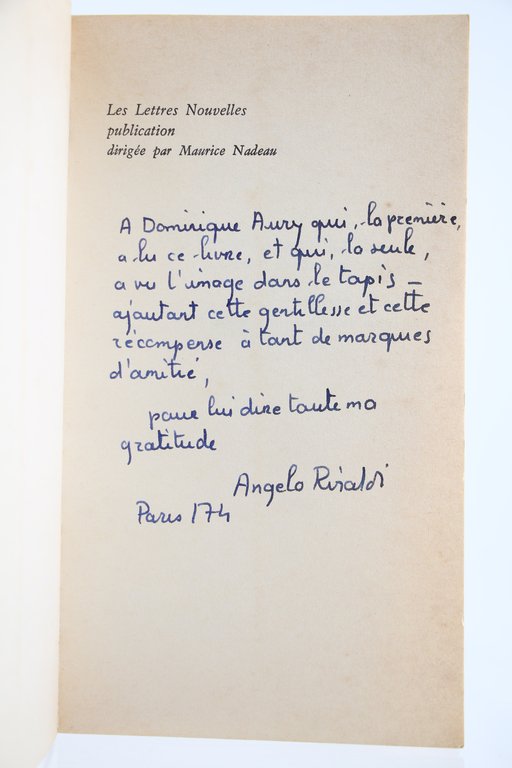 Les Lettres Nouvelles
publication
dirigée par Maurice Nadeau
A Dominique Aury qui, la première,
a lu ce livre, et qui, la seule,
a vu l'image dans le tapis —
ajoutant cette gentillesse et cette
récompense à tant de marques
d'amitié,
pour lui dire toute ma
gratitude
Angelo Rinaldi
Paris 174